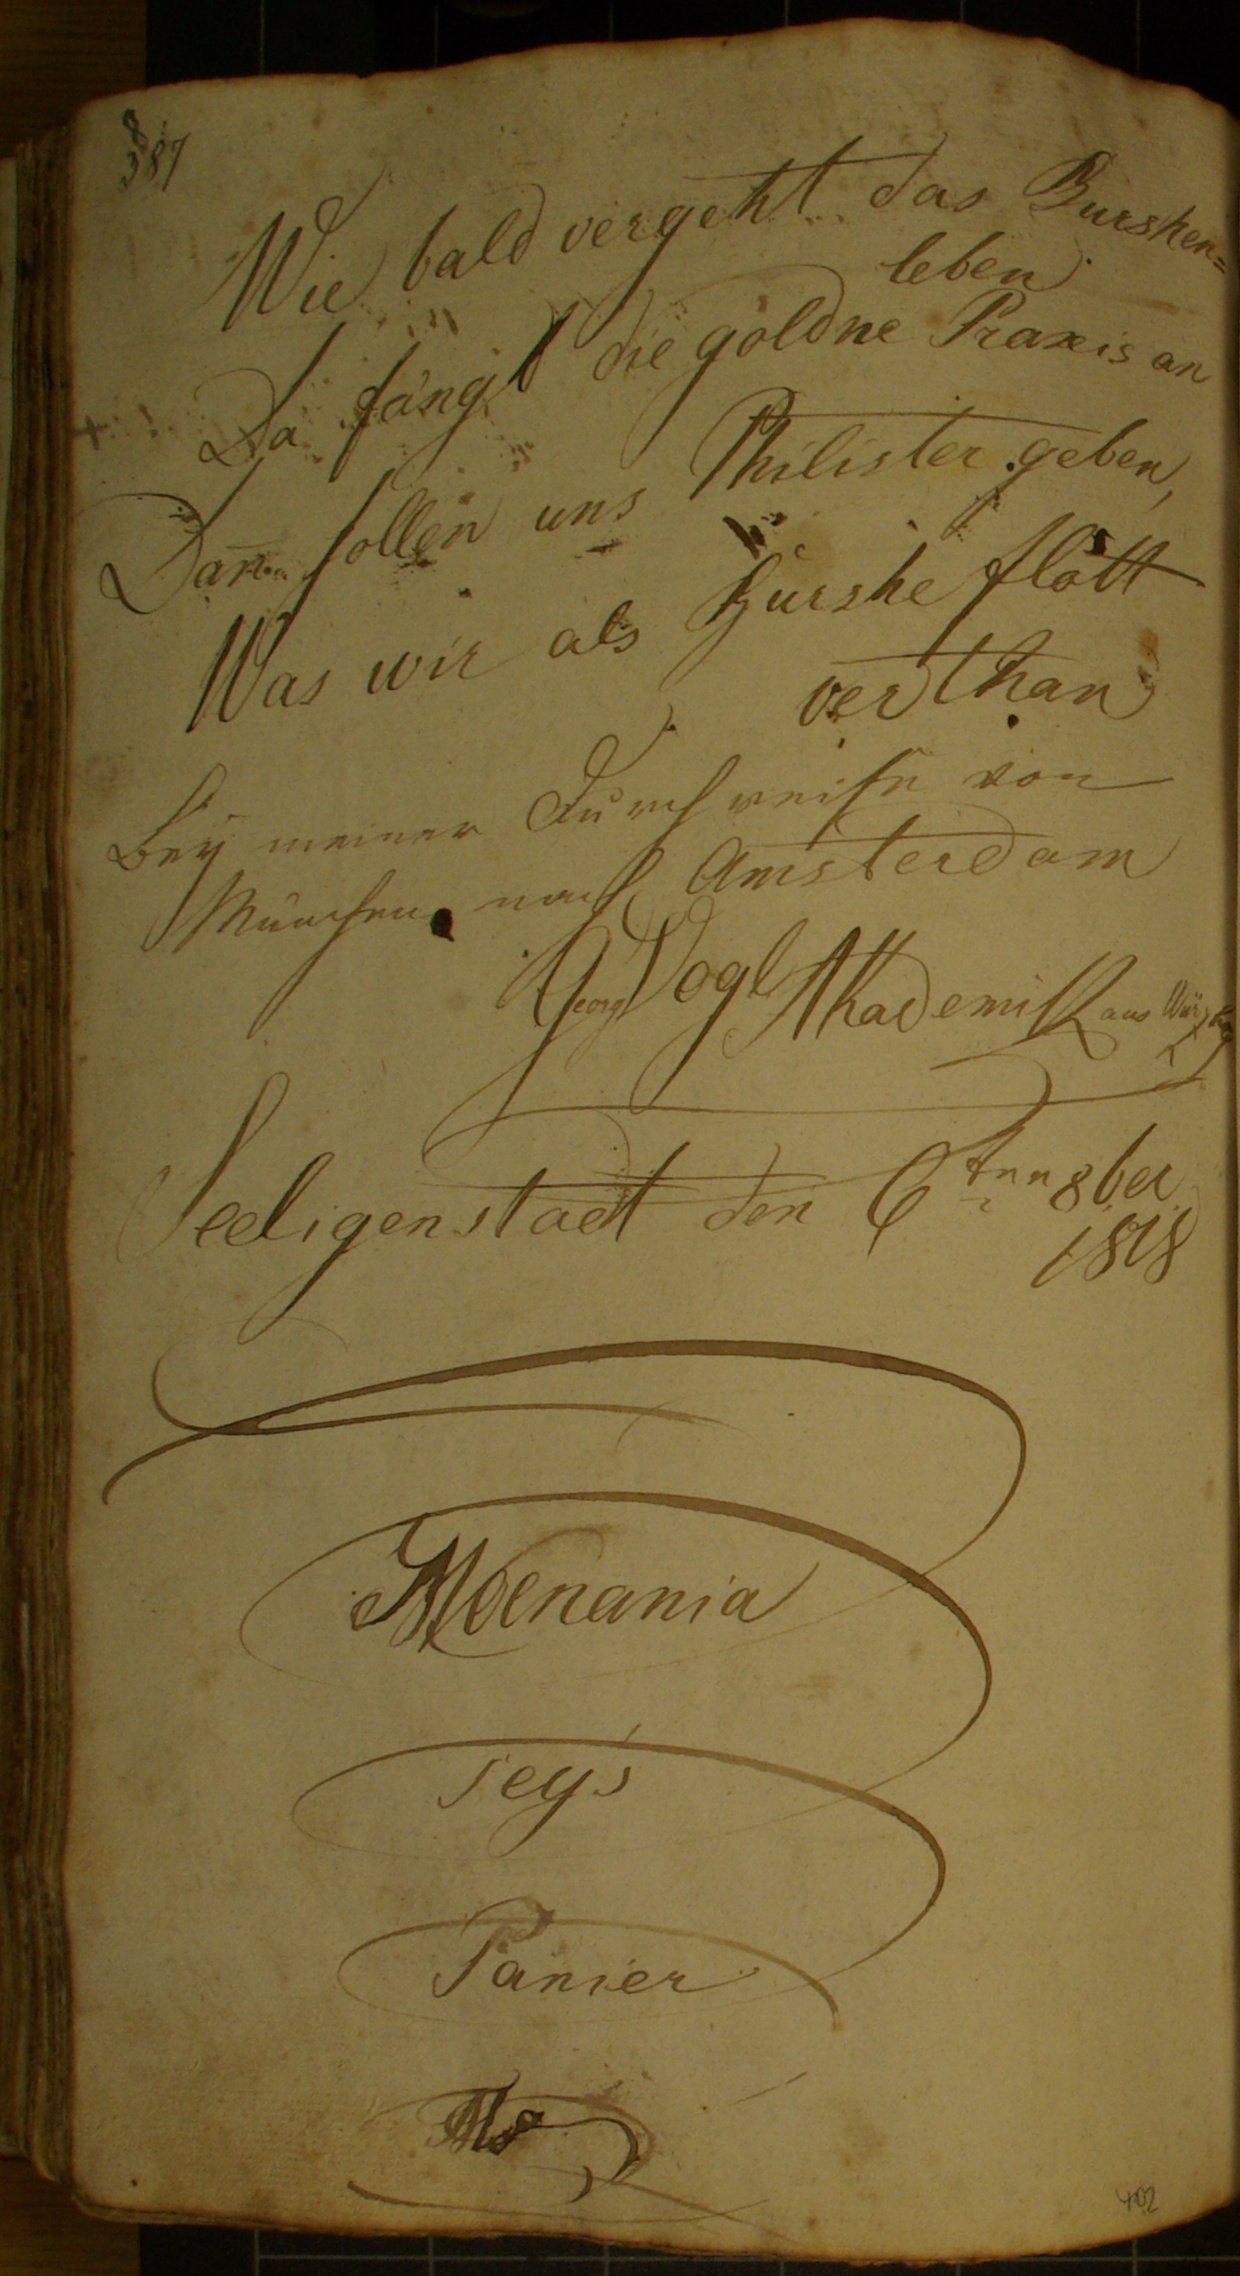 8
387
Wie bald vergeht das Burshen=
leben
Da fängt die goldne Praxis an
Dan̄ sollen uns Philister geben,
Was wir als Burshe flott
verthan
Bey meiner Durchreise von
München nach Amsterdam
Georg Vogl Akademiker aus Würzburg
Seeligenstadt den 6ten 8ber
1818
Moenania
seys
Panier
402